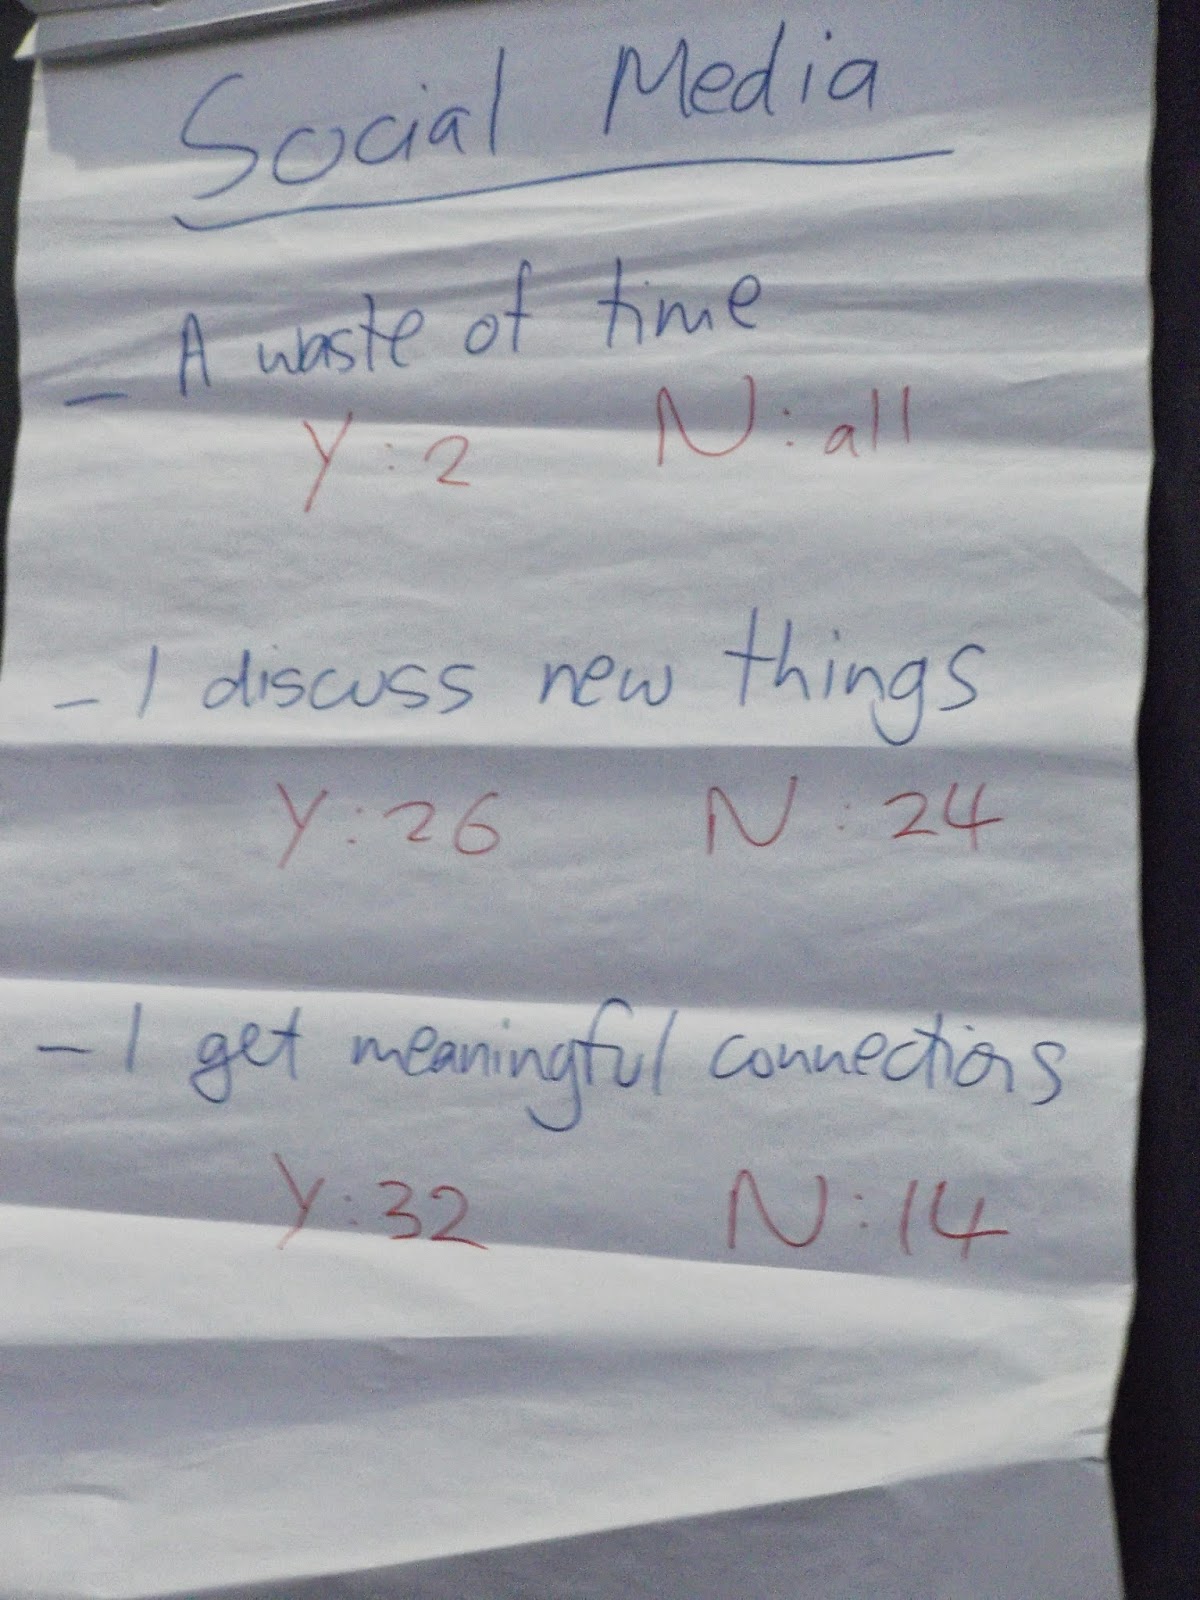 Social Media
- A waste of time
Y: 2 N: all
- I discuss new things
Y: 26 N: 24
- I get meaningful connections
Y: 32 N: 14